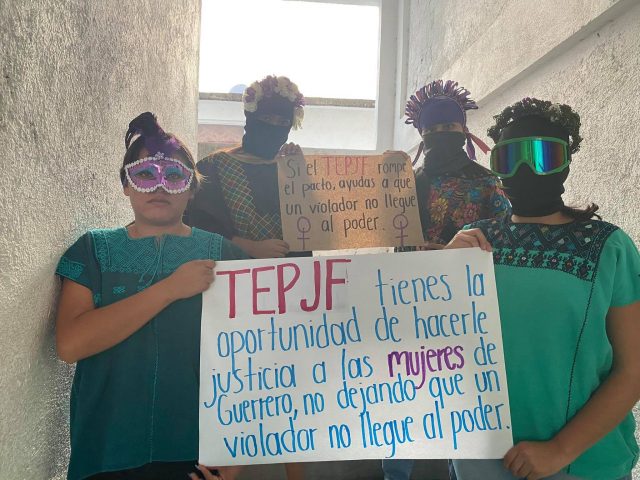 Si el TEPJF rompe
el pacto, ayudas a que
un violador no llegue
al poder.
TEPJF tienes la
oportunidad de hacerle
justicia a las mujeres de
Guerrero, no dejando que un
violador no llegue al poder.